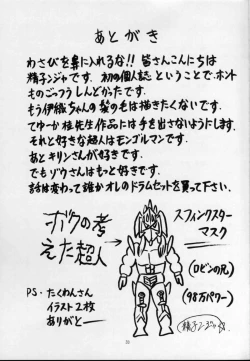 あとがき
わさびを鼻に入れるな!! 皆さんこんにちは
精子ンジャです。初の個人誌ということで、ホント
ものごっつうしんどかったです。
もう伊織ちゃんの髪の毛は描きたくないです。
てゆーか桂先生作品には手を出さないようにします。
それと好きな超人はモンゴルマンです。
あとキリンさんが好きです。
でもゾウさんはもっと好きです。
話は変わって誰かオレのドラムセットを買って下さい。
ボクの考
えた超人
スフィンクスター
マスク
(ロビンの兄)
(98万パワー)
PS・たくわんさん
イラスト2枚
ありがとー